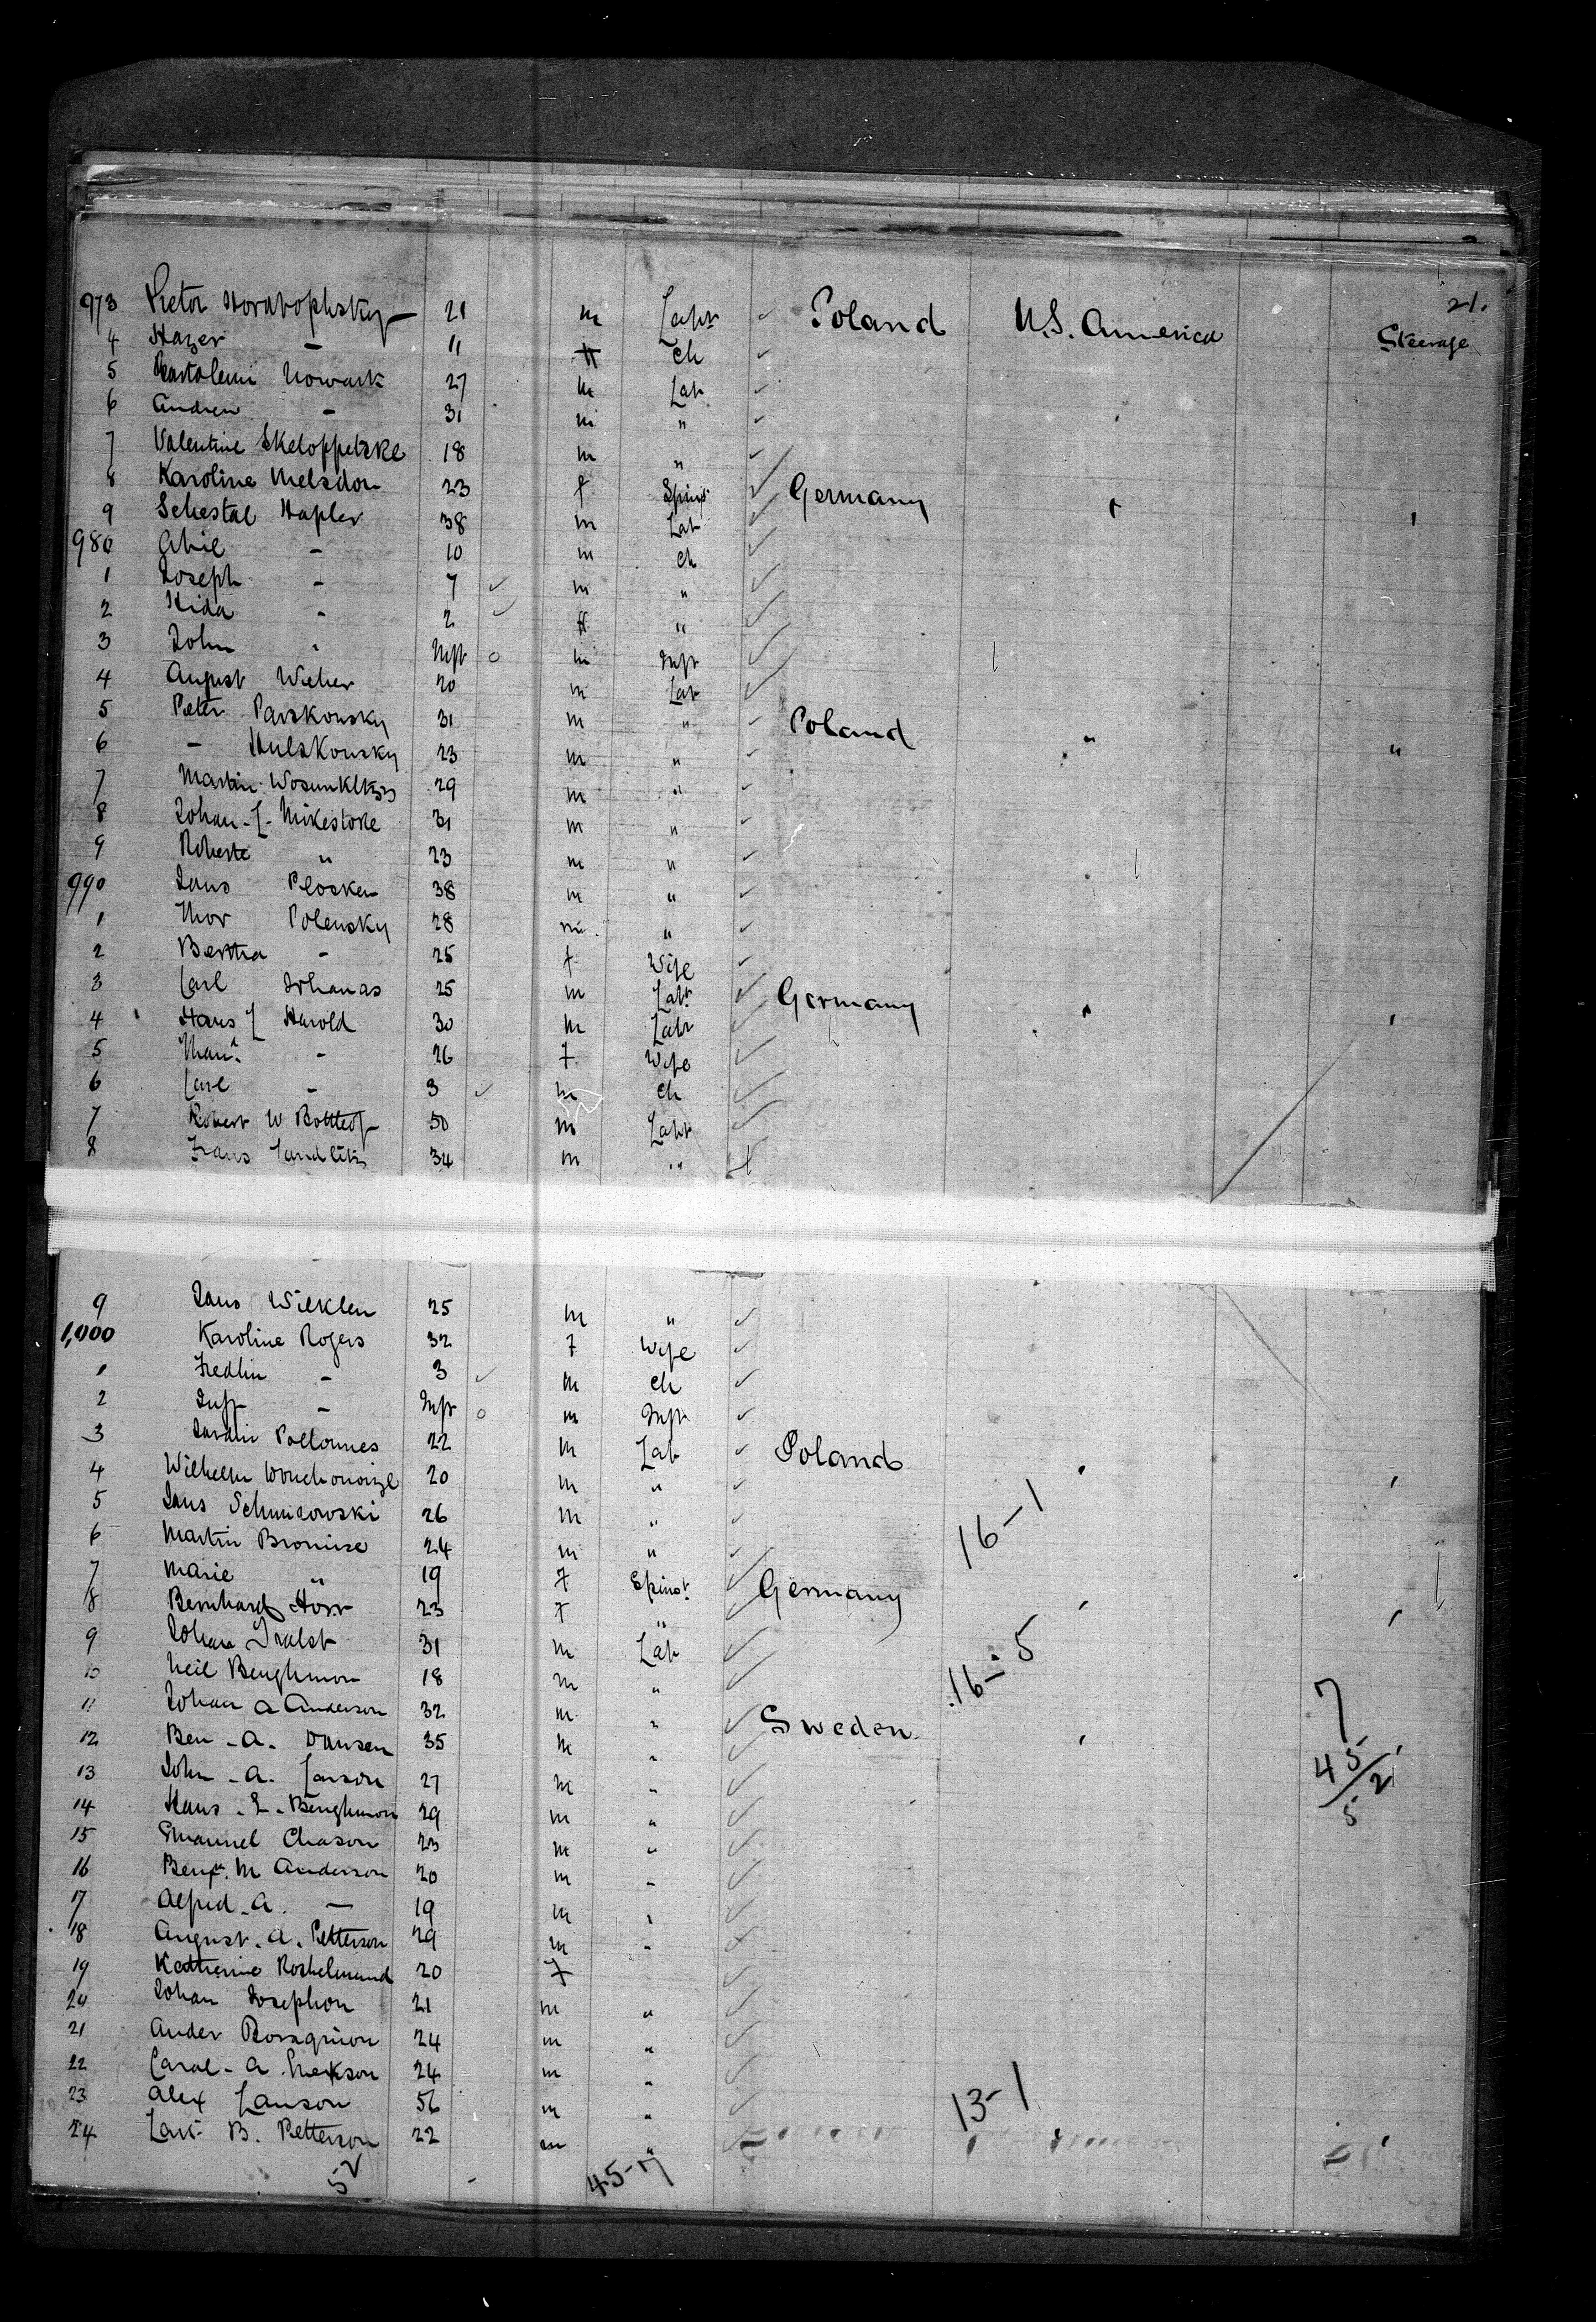 21.
973 Victor Horatophsky 21 m Labr Poland U.S. America Steerage
4 Hazer - 11 ch
5 Bartolemi Nowark 27 m Lab
6 Andrew - 31 m "
7 Valentine Skeloppetzke 18 m "
8 Karoline Melzdon 23 f Spins Germany "
9 Sehestal Hapler 38 m Lab
980 - 10 m ch
1 Joseph - 7 m "
2 Hida - 2 f "
3 John " Inft o m Inft
4 August Weher 20 m Lab
5 Peter Parskowsky 31 m " Poland " "
6 - Hulskowsky 23 m "
7 Martin 29 m "
8 Johan - L - Mikestoke 31 m "
9 Roherte " 23 m "
990 Jans Plosken 38 m "
1 Polensky 28 m "
2 Bertha - 25 f Wife
3 Carl Johanas 25 m Labr Germany " "
4 Hans L Harold 30 m Labr
5 - 26 f Wife
6 Carl - 3 m ch
7 Robert W 50 m Labr
8 Frans Landlitz 34 m "
9 Jans Wilklen 25 m "
1,000 Karoline Rogers 32 f Wife
1 Fredlin - 3 m ch
2 Inft - Inft o m Inft
3 Poltonnes 22 m Lab Poland " "
4 Wilhelm 20 m "
5 Jans Schmicowski 26 m " 16-1
6 Martin Bromise 24 m "
7 Marie " 19 f Spinst Germany " "
8 Bernhard Horr 23 f "
9 Johan 31 m Lab
10 Neil Benghmon 18 m " 16-5
11 Johan A Anderson 32 m " Sweden " "
12 Ben - A - Dansen 35 m " 7
13 John - A. Larson 27 m " 45/52
14 Hans - L - Benghmon 29 m "
15 Emannel Chason 23 m "
16 Benj. M Anderson 20 m "
17 Alfred - A. - 19 m "
18 August. A. Petterson 29 m "
19 Katherine Roshelmund 20 f
20 Johan Josephon 21 m "
21 Ander 24 m "
22 Caral - A 24 m "
23 Alex Lanson 56 m " 13-1
24 B. Petterson 22 m "
52 45-7